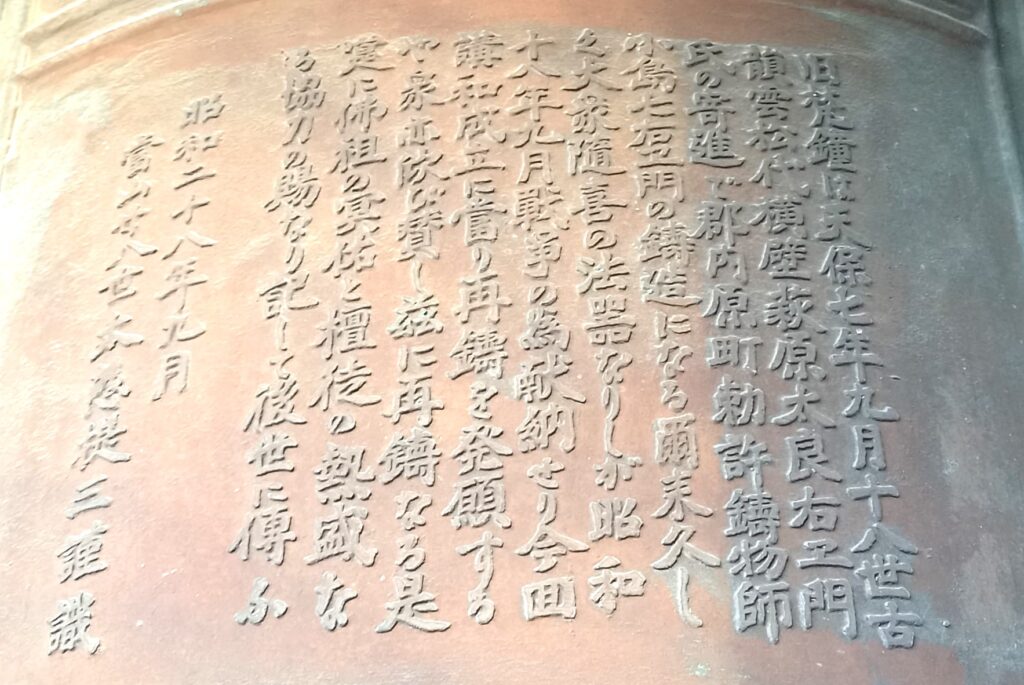 旧梵鐘は天保七年九月十八世古
韻雲松代横壁萩原太良右エ門
氏の寄進で郡内原町勅許鋳物師
小島七右エ門の鋳造になる爾来久し
く大衆隨喜の法器なりしが昭和
十八年九月戦争の為献納せり今回
講和成立に當り再鑄を発願する
や衆亦欣び賛し茲に再鑄なる是
寔に佛祖の冥佑と檀徒の熱盛な
る協力の賜なり記して後世に傳ふ
昭和二十八年九月
當山廿八世大隆提三謹識